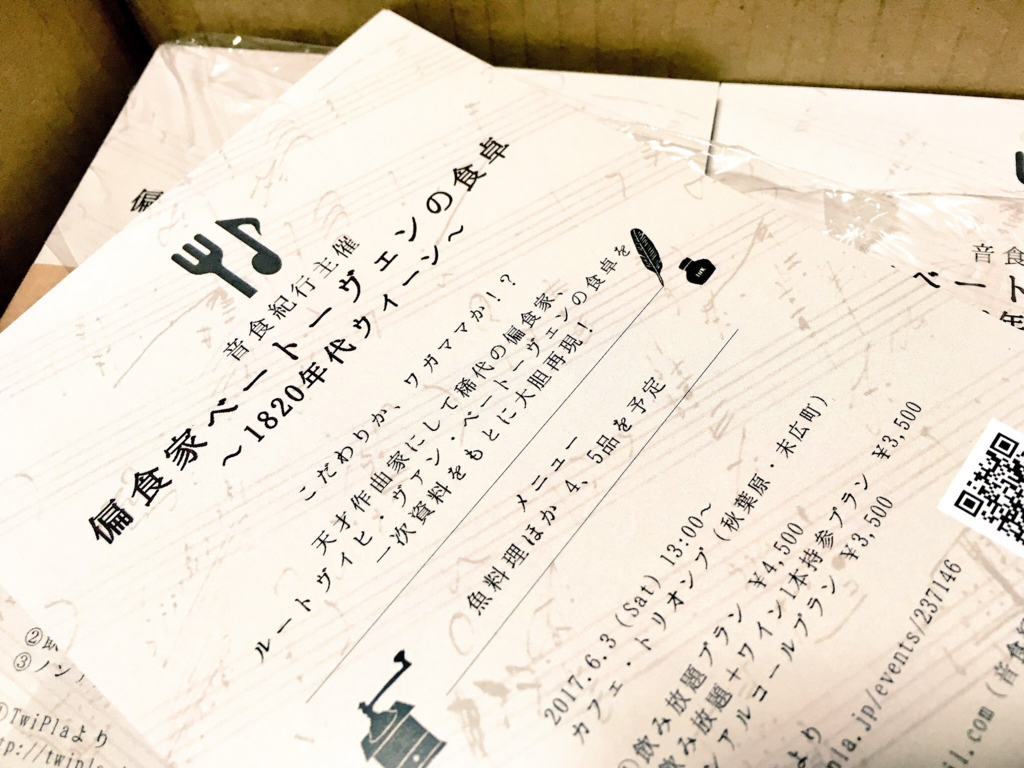 音食紀行主催
偏食家ベートーヴェンの食卓
～1820年代ウィーン～
こだわりか、ワガママか！？
天才作曲家にして稀代の偏食家、
ルートヴィヒ・ヴァン・ベートーヴェンの食卓を
一次資料をもとに大胆再現！
ink
メニュー
魚料理ほか 4、5品を予定
2017.6.3 (Sat) 13:00～
カフェ・トリオンプ (秋葉原・末広町)
飲み放題プラン ¥4,500
飲み放題＋ワイン1本持参プラン ¥3,500
アルコールプラン ¥3,500
より
pla.jp/events/237146
il.com (音食紀
偏
音食
ベート
②
③ノン
TwiPlaより
tp://twipla